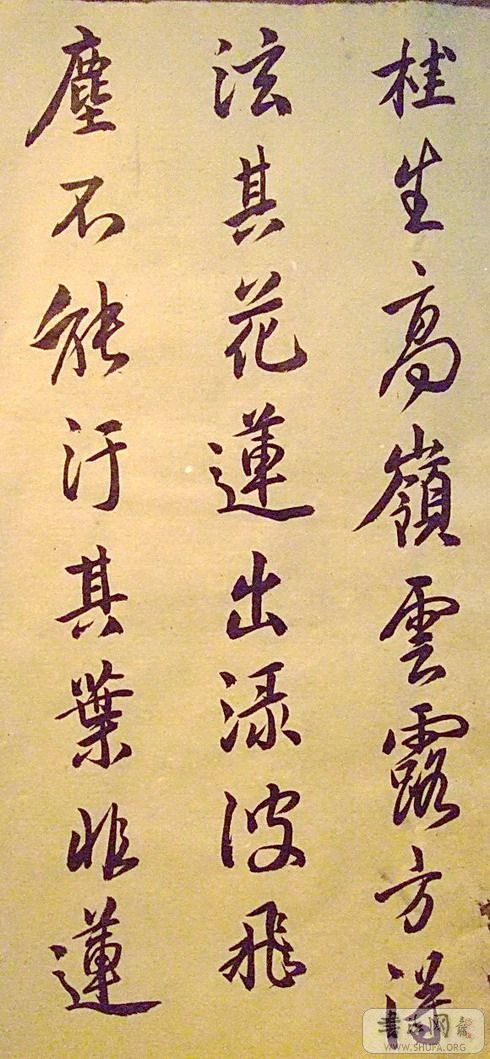 桂生高嶺雲露方得
泫其花蓮出淥波飛
塵不能汙其葉非蓮
書法网
WWW.SHUFA.ORG